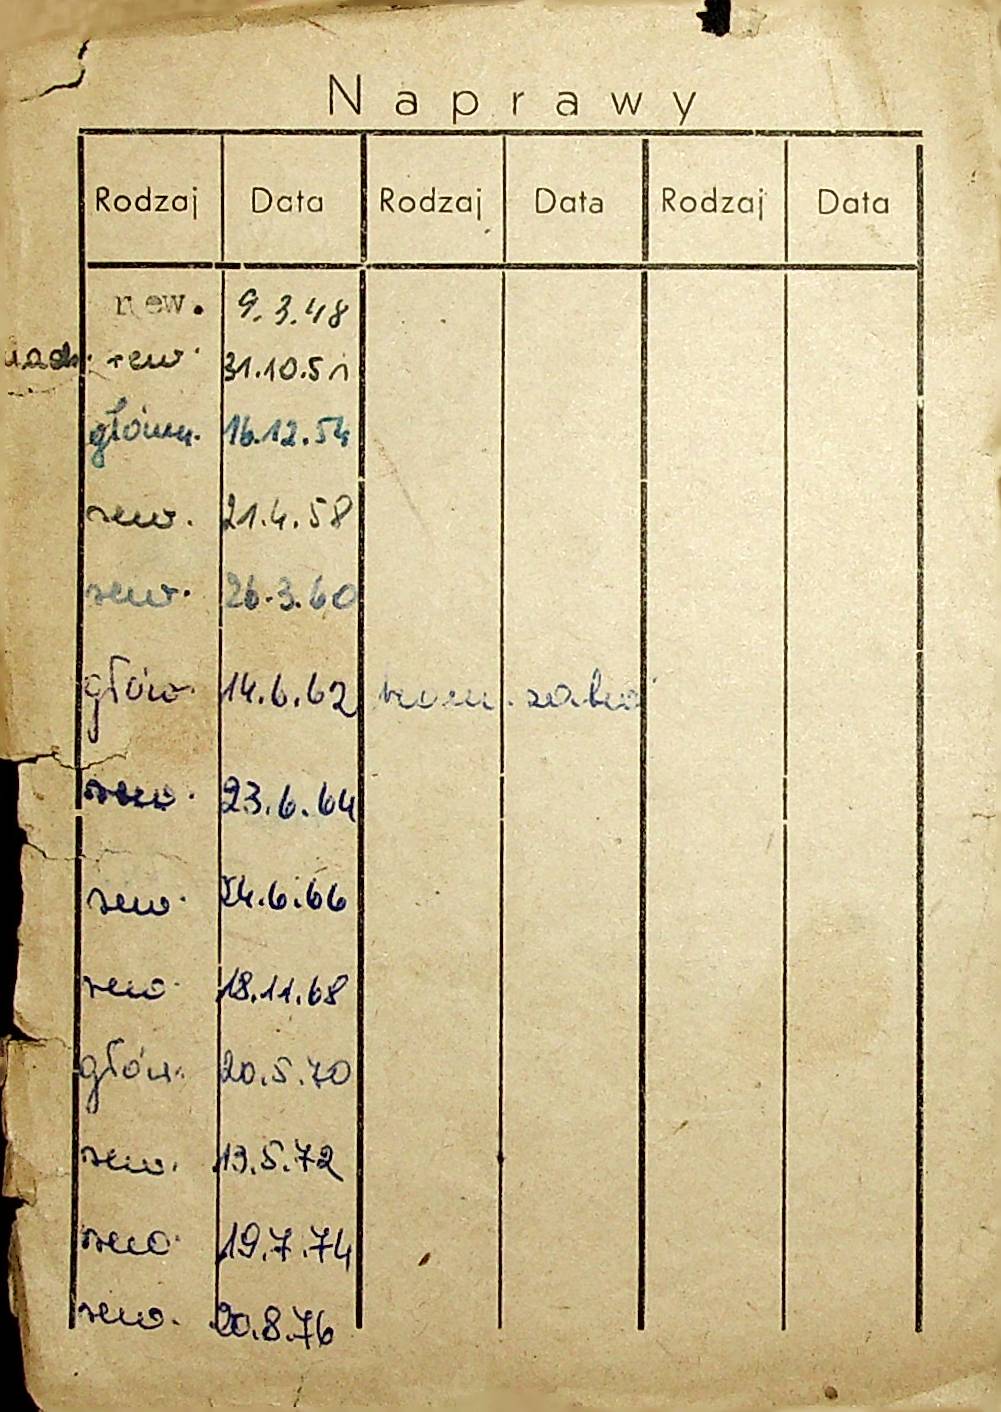 Naprawy
Rodzaj Data Rodzaj Data Rodzaj Data
rew. 9.3.48
rew. 31.10.51
główn. 16.12.54
rew. 21.4.58
rew. 26.3.60
głów. 14.6.62
rew. 23.6.64
rew. 24.6.66
rew. 18.11.68
głów. 20.5.70
rew. 13.5.72
rew. 19.7.74
rew. 20.8.76